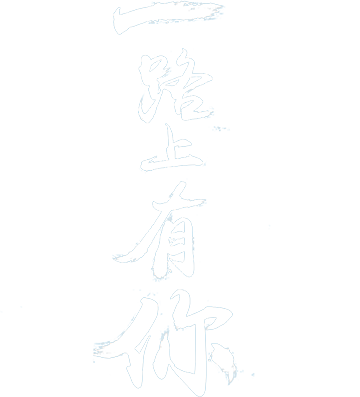 一路上有你